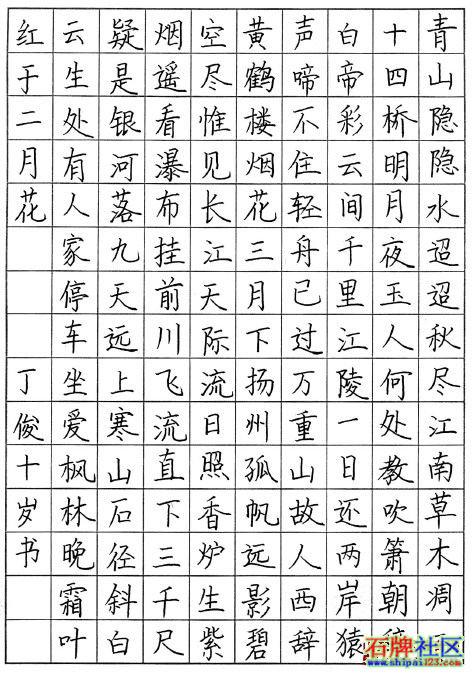 青山隐隐水迢迢秋尽江南草木凋
十四桥明月夜玉人何处教吹箫朝
白帝彩云间千里江陵一日还两岸猿
声啼不住轻舟已过万重山故人西辞
黄鹤楼烟花三月下扬州孤帆远影碧
空尽惟见长江天际流日照香炉生紫
烟遥看瀑布挂前川飞流直下三千尺
疑是银河落九天远上寒山石径斜白
云生处有人家停车坐爱枫林晚霜叶
红于二月花
丁俊十岁书
石牌社区
www.shipai123.com